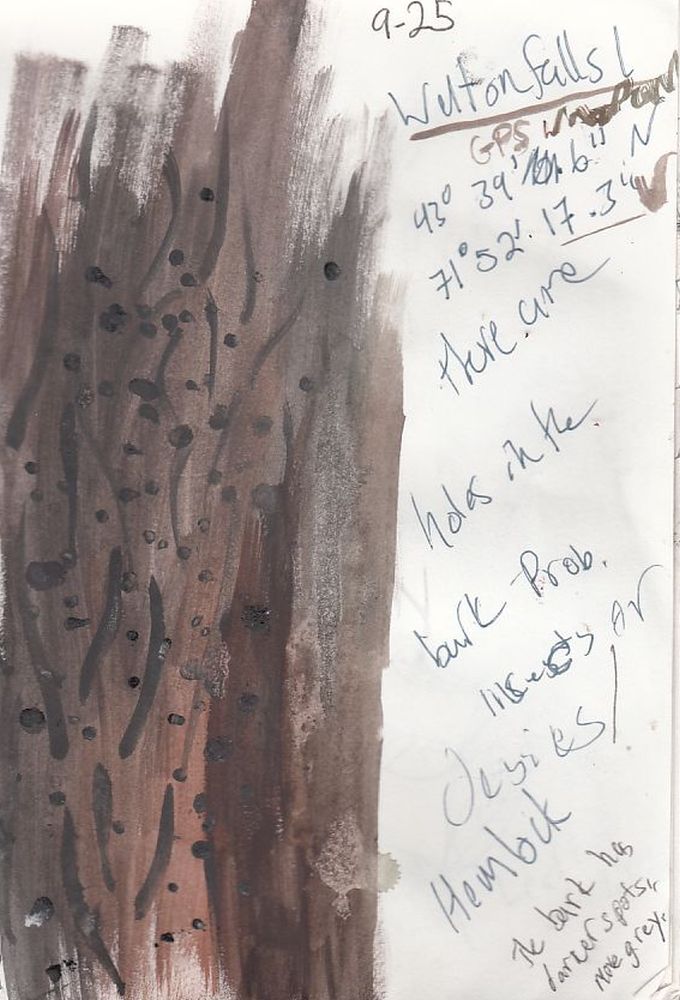 9-25
Weltonfalls
GPS
43° 39' 6" N
71° 52' 17.3"
there are
holes in the
bark Prob.
insects or
Hemlock
The bark has
darker spots,
more grey.